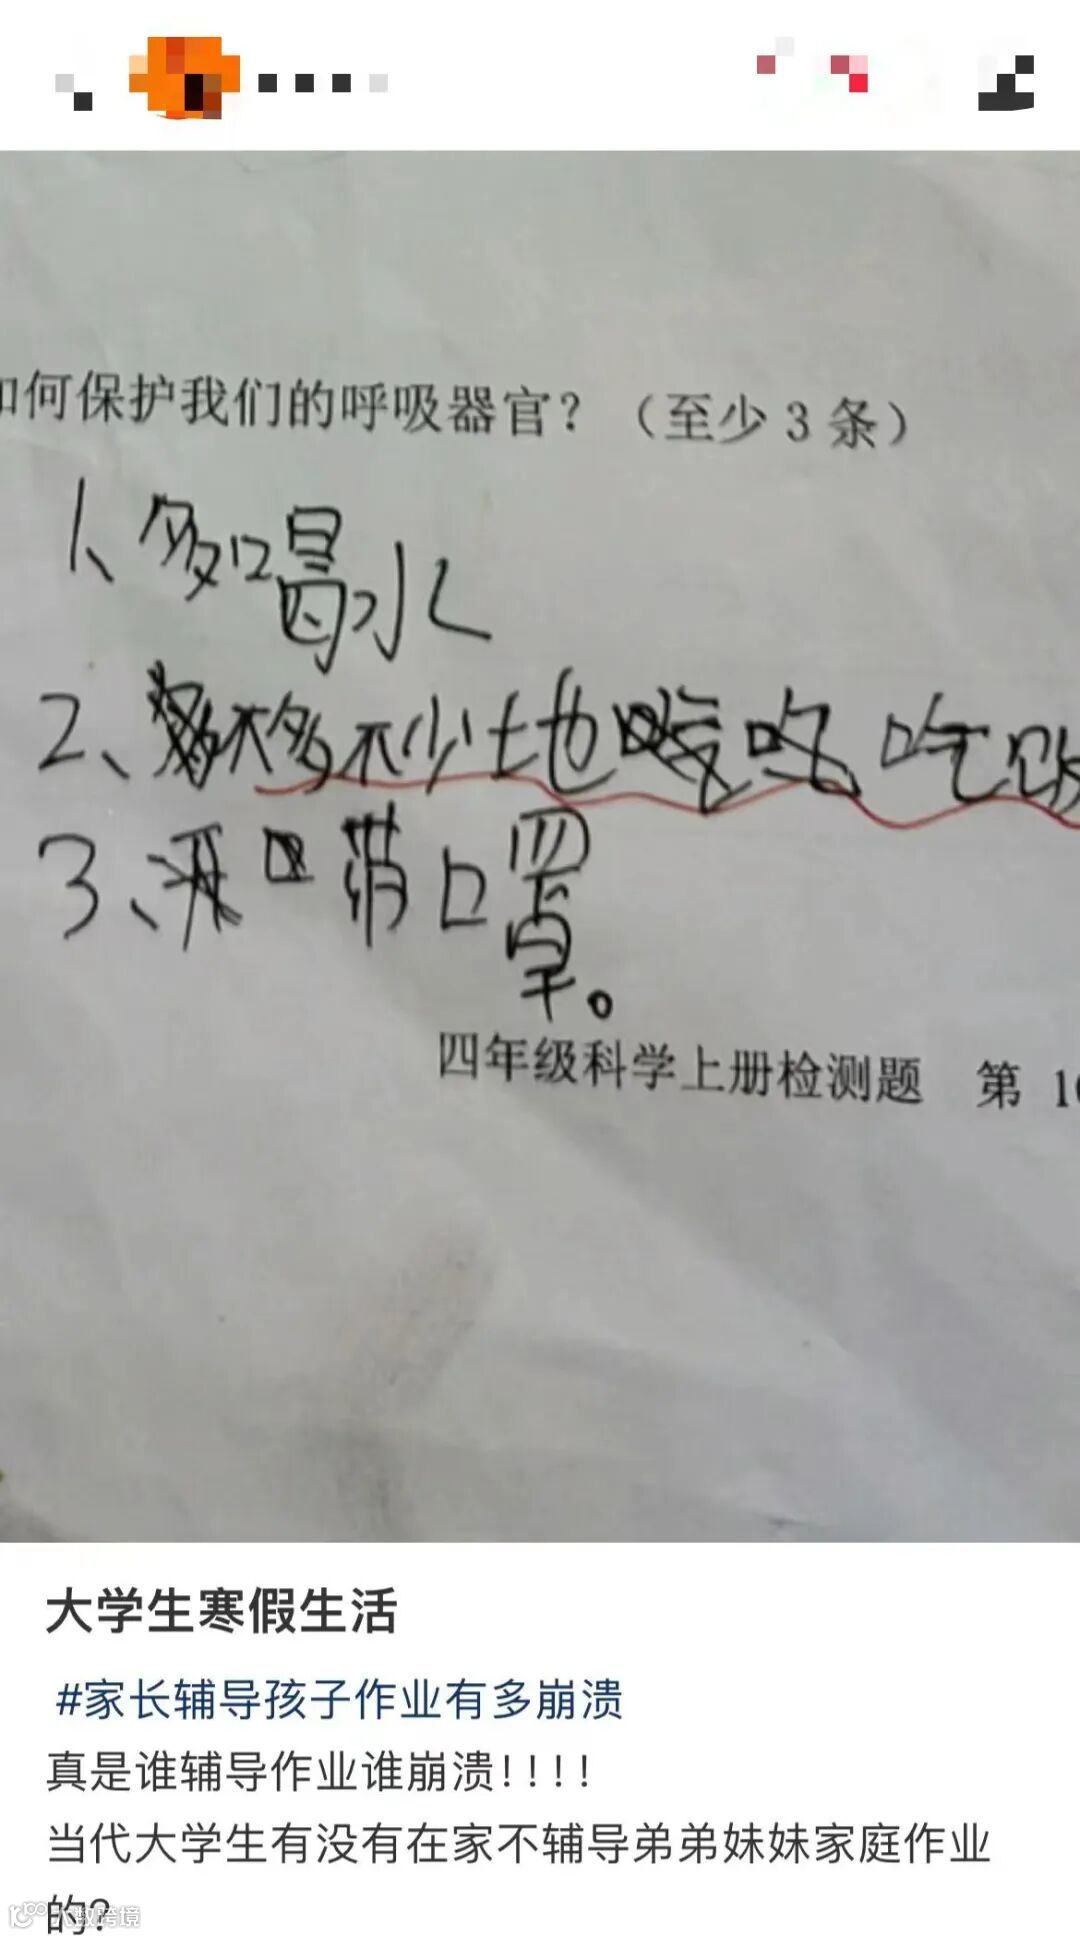 如何保护我们的呼吸器官？（至少 3 条）
1、多喝水
2、不多不少土地 吃饭
3、带口罩。
四年级科学上册检测题 第 1
大学生寒假生活
#家长辅导孩子作业有多崩溃
真是谁辅导作业谁崩溃!!!!
当代大学生有没有在家不辅导弟弟妹妹家庭作业
的?
大数跨境